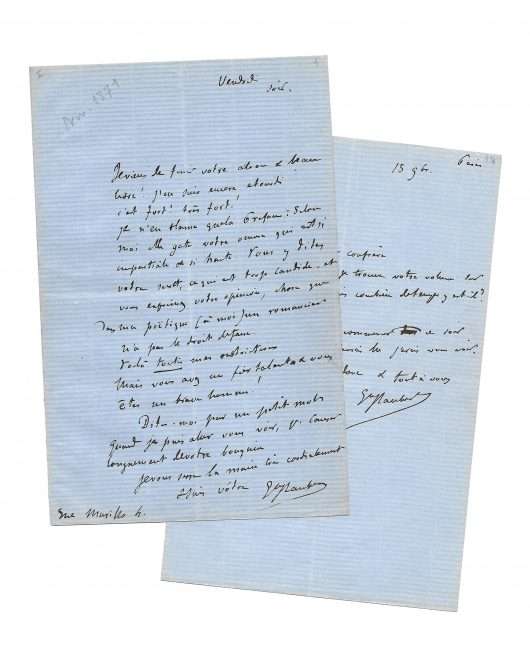 Vendredi
soir.
Je viens de finir votre atroce & beau
livre! j'en suis encore étourdi
c'est fort! très fort!
je n'en blâme que la Préface. Selon
moi, elle gâte votre œuvre qui est si
impartiale & si haute. Vous y dites
votre secret, ce qui est trop candide, et
vous exprimez votre opinion, chose que
dans ma poétique (à moi) un romancier
n'a pas le droit de faire.
Voilà toutes mes restrictions
Mais vous avez un fier talent & vous
êtes un brave homme!
Dites-moi par un petit mot,
quand je puis aller vous voir, pr causer
longuement de votre bouquin
je vous serre la main très cordialement
& suis vôtre Gve Flaubert
Rue Murillo 4.
Paris
15 9br.
confrère
je trouve votre volume sur
combien de temps y est-il?
commencé ce soir
je vous voir.
& tout à vous
Gve Flaubert